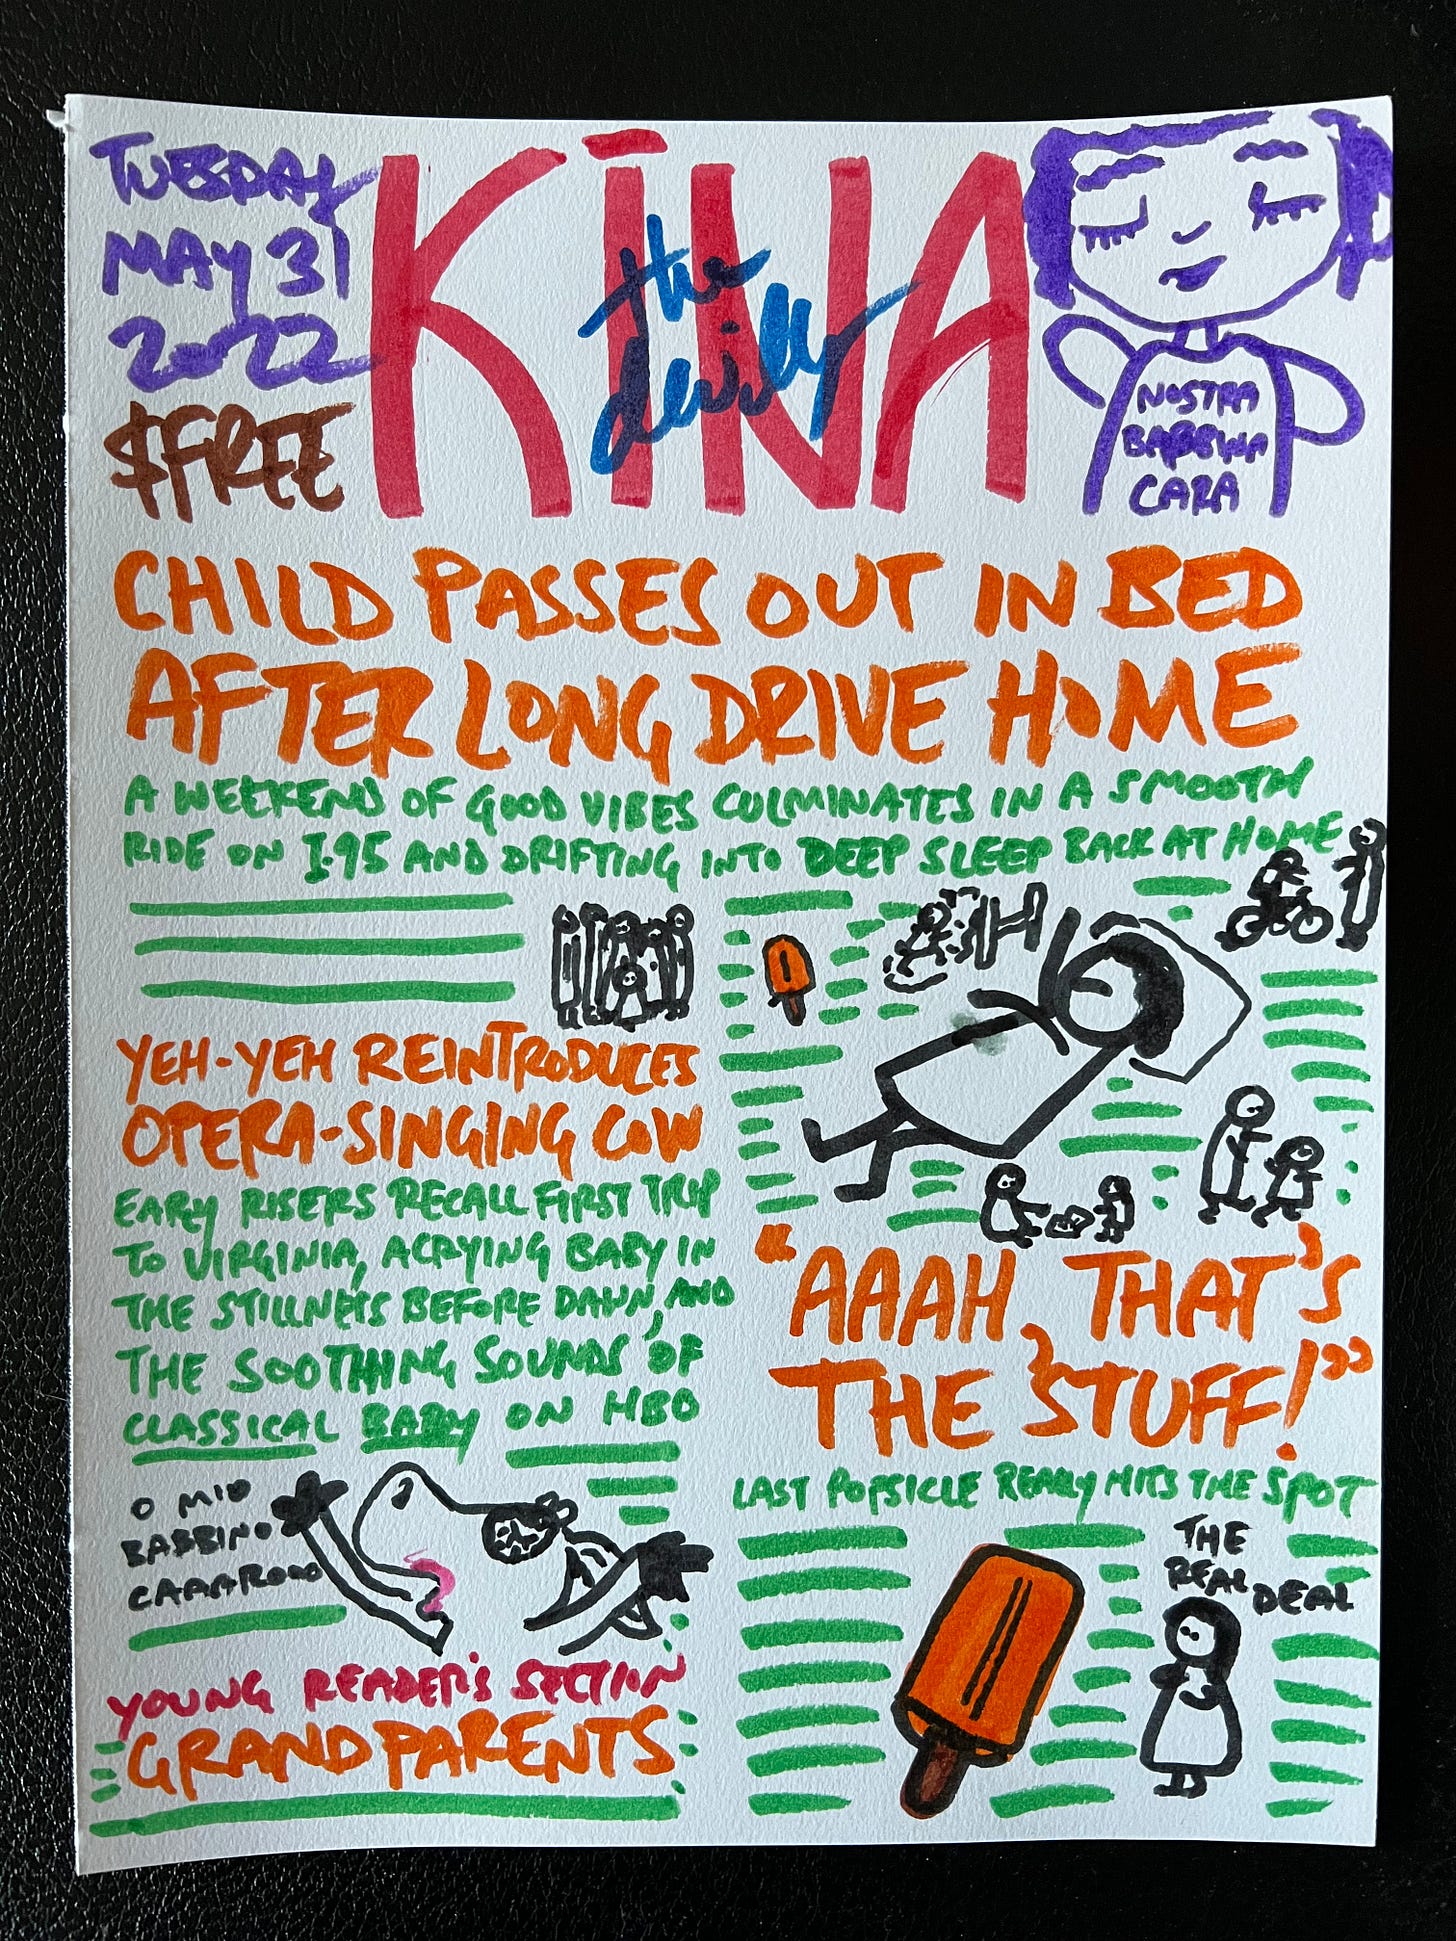 TUESDAY
MAY 31
2022
$FREE
KINA
the daily
NOSTRA
BABBINA
CARA
CHILD PASSES OUT IN BED
AFTER LONG DRIVE HOME
A WEEKEND OF GOOD VIBES CULMINATES IN A SMOOTH
RIDE ON I-95 AND DRIFTING INTO DEEP SLEEP BACK AT HOME
YEH-YEH REINTRODUCES
OPERA-SINGING COW
EARY RISERS RECALL FIRST TRIP
TO VIRGINIA, A CRYING BABY IN
THE STILLNESS BEFORE DAWN, AND
THE SOOTHING SOUNDS OF
CLASSICAL BABY ON HBO
O MIO
BABBINO
YOUNG READER'S SECTION
GRANDPARENTS
"AAAH, THAT'S
THE STUFF!"
LAST POPSICLE REALLY HITS THE SPOT
THE
REAL DEAL